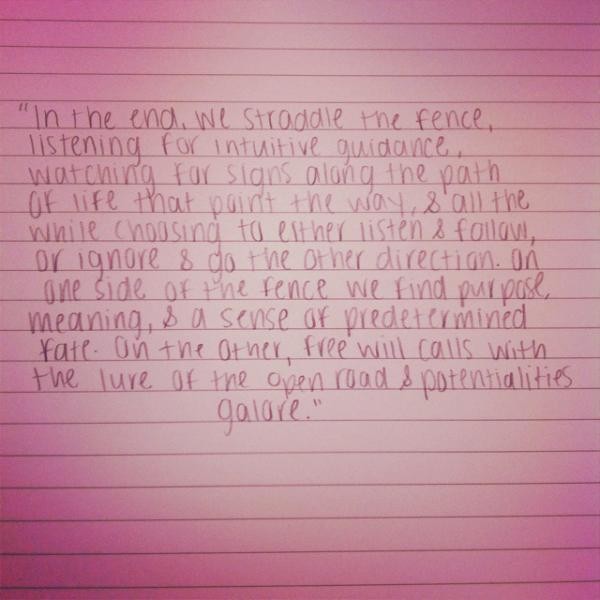 "In the end, we straddle the fence,
listening for intuitive guidance,
watching for signs along the path
of life that point the way, & all the
while choosing to either listen & follow,
or ignore & go the other direction. On
one side of the fence we find purpose,
meaning, & a sense of predetermined
fate. On the other, free will calls with
the lure of the open road & potentialities
galore."